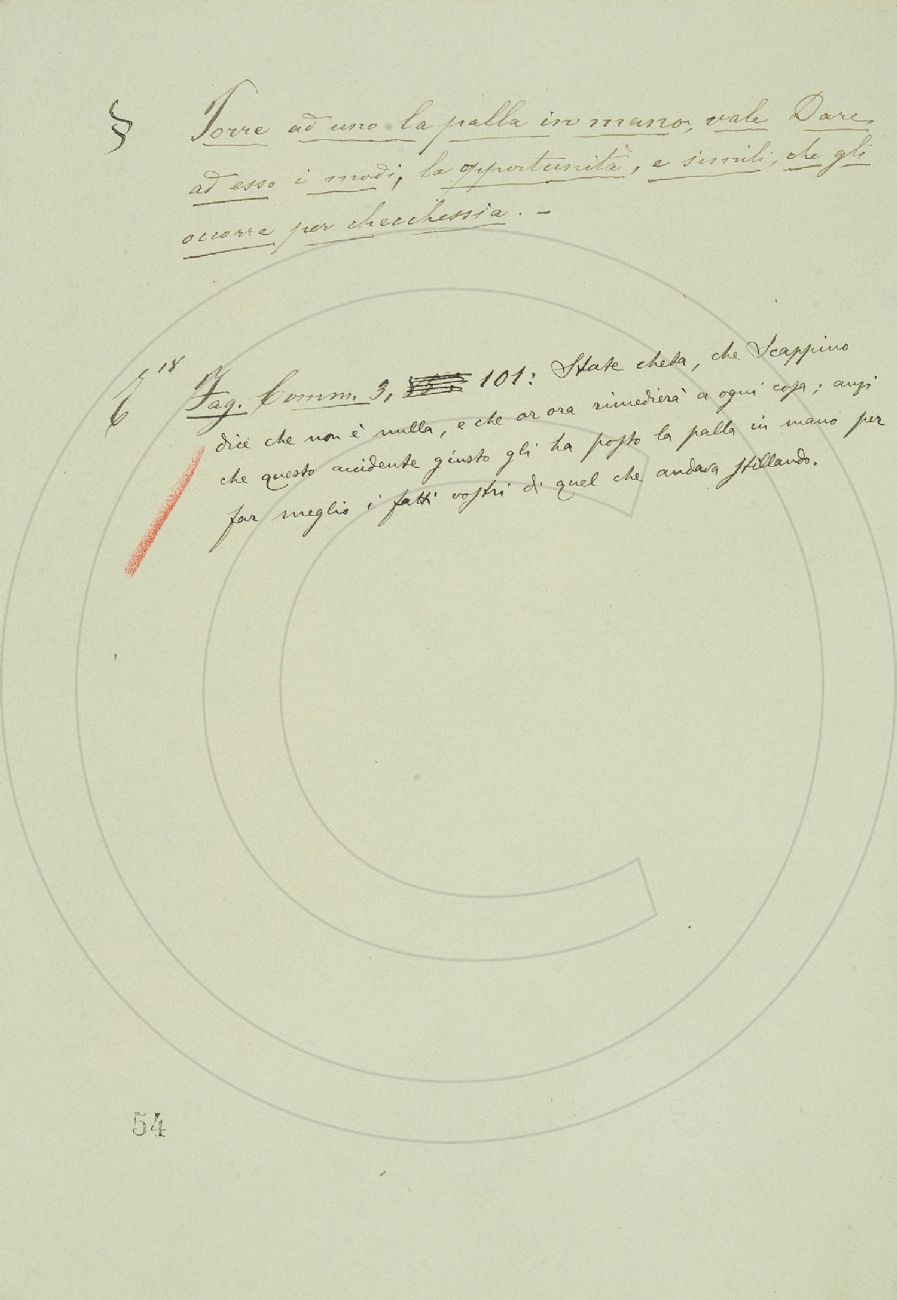 § Porre ad uno la palla in mano, vale Dare
ad esso i modi, la opportunità, e simili, che gli
occorre per checchessia. –
18 Fag. Comm. 3, 101: State cheta, che Scappino
dice che non è nulla, e che or ora rimedierà a ogni cosa; anzi
che questo accidente giusto gli ha posto la palla in mano per
far meglio i fatti vostri di quel che andava stillando.
54